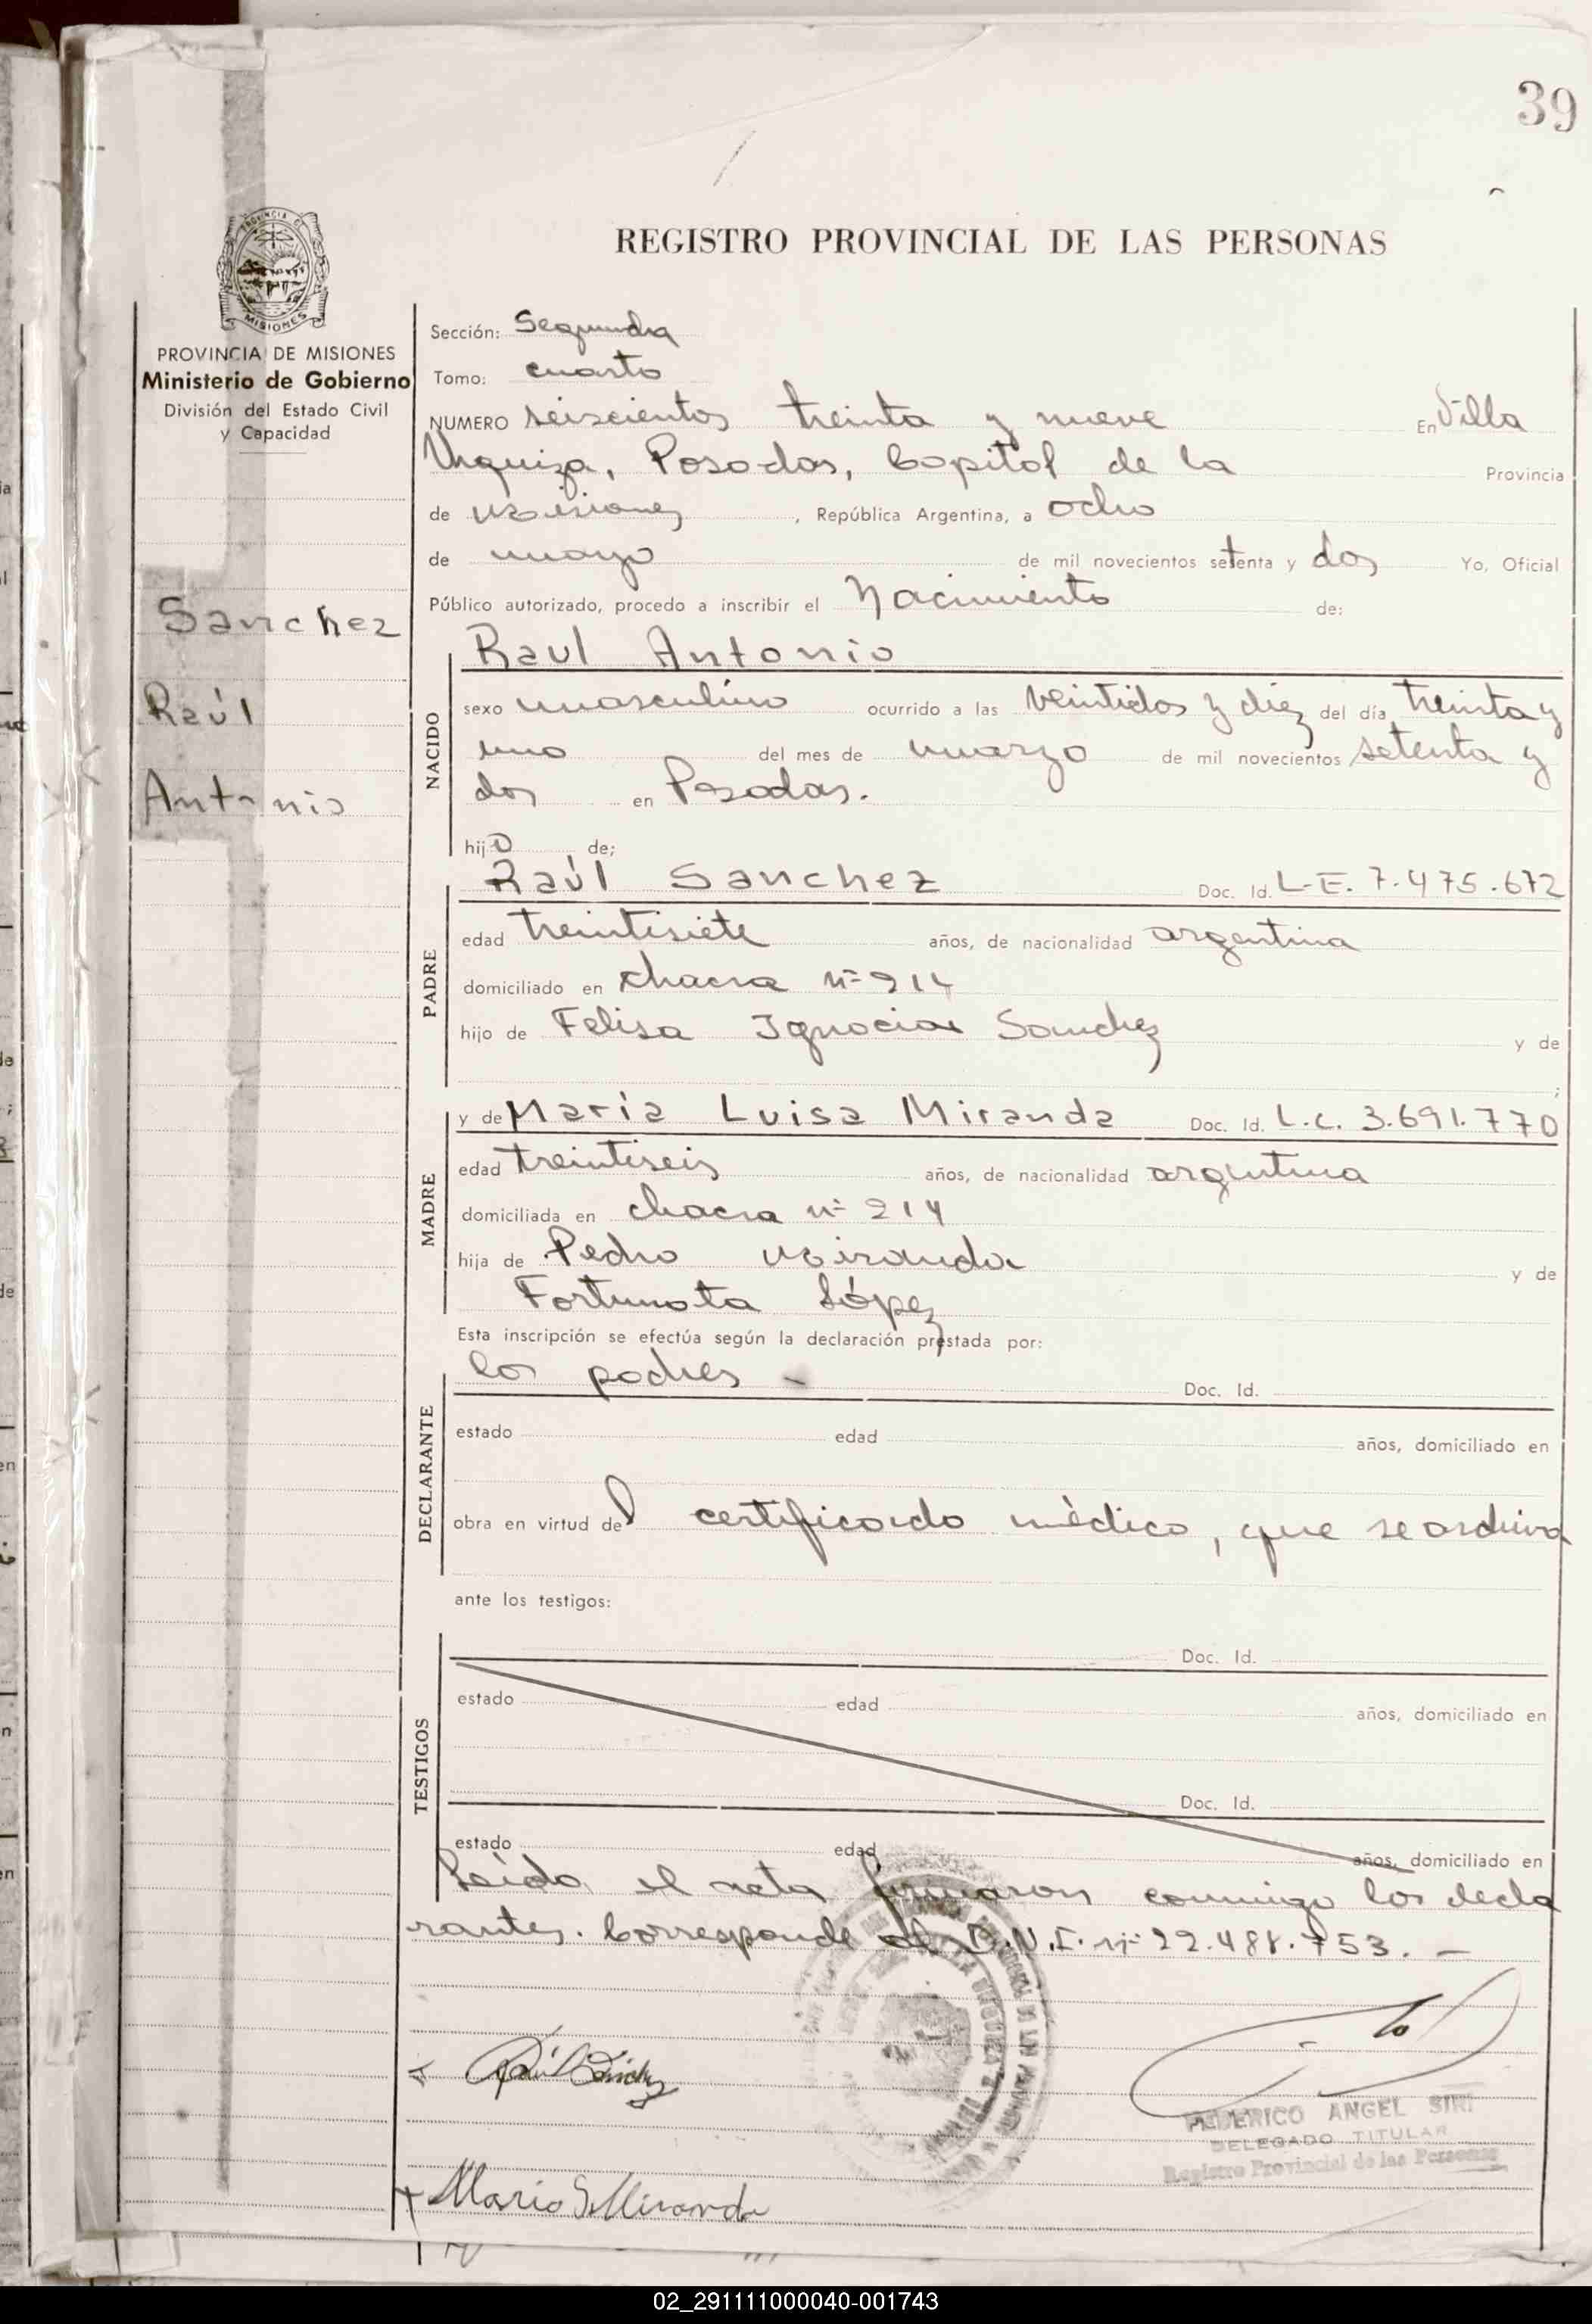 39
REGISTRO PROVINCIAL DE LAS PERSONAS
MISIONES
PROVINCIA DE MISIONES
Ministerio de Gobierno
División del Estado Civil
y Capacidad
Sanchez
Raúl
Antonio
Sección: Segunda
Tomo: cuarto
NUMERO seiscientos treinta y nueve En Villa
Urquiza, Posadas, Capital de la Provincia
de Misiones, República Argentina, a ocho
de mayo de mil novecientos setenta y dos Yo, Oficial
Público autorizado, procedo a inscribir el Nacimiento de:
NACIDO
Raul Antonio
sexo masculino ocurrido a las veintidos y diez del día treinta y
uno del mes de marzo de mil novecientos setenta y
dos en Posadas.
hijo de;
PADRE
Raúl Sanchez Doc. Id. L.E. 7.475.672
edad treintisiete años, de nacionalidad argentina
domiciliado en chacra nº 214
hijo de Felisa Ignacia Sanchez y de
;
MADRE
y de María Luisa Miranda Doc. Id. L.C. 3.691.770
edad treintiseis años, de nacionalidad argentina
domiciliada en chacra nº 214
hija de Pedro Miranda y de
Fortunata López
Esta inscripción se efectúa según la declaración prestada por:
DECLARANTE
los padres - Doc. Id.
estado edad años, domiciliado en
obra en virtud del certificado mèdico, que se archiva
ante los testigos:
TESTIGOS
Doc. Id.
estado edad años, domiciliado en
Doc. Id.
estado edad años, domiciliado en
Leída el acta firmaron conmigo los decla
rantes. Corresponde al D.N.I. nº 22.488.753. -
Raúl Sánchez
FEDERICO ANGEL SIRI
DELEGADO TITULAR
Registro Provincial de las Personas
Maria S. Miranda
02_291111000040-001743